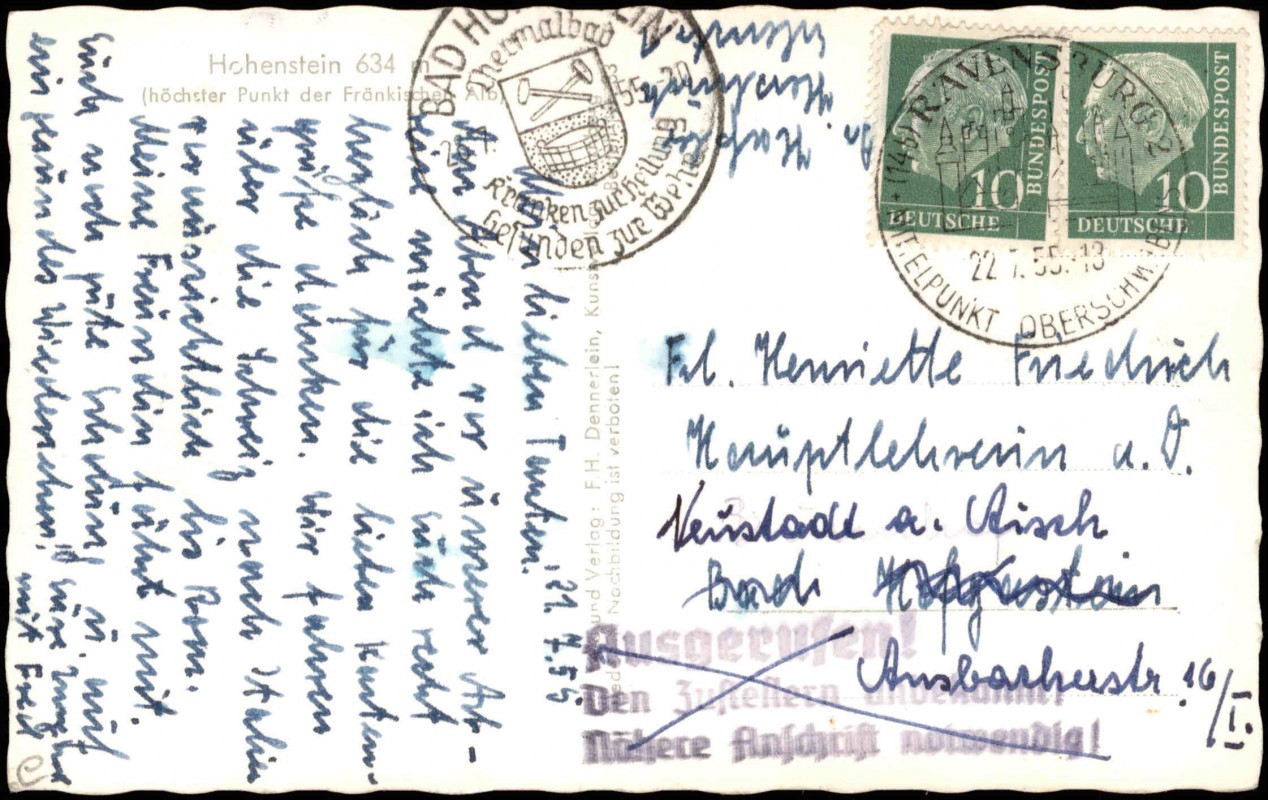 Hohenstein 634 m
(höchster Punkt der Fränkischen Alb)
BAD HO
Thermalbad
55.-20
Kranken zur Heilung
Gesunden zur Wehr
DEUTSCHE
10
BUNDESPOST
DEUTSCHE
10
BUNDESPOST
(14b) RAVENSBURG 2
22.7.55.-18
MITTELPUNKT OBERSCHWABENS
und Verlag: F.H. Dennerlein, Kunst
Nachbildung ist verboten!
21.7.55.
lieben Tanten!
Am Abend vor unserer Ab-
reise möchte ich Euch recht
herzlich für die lieben Karten-
grüße danken. Wir fahren
über die Schweiz nach Italien
voraussichtlich bis Rom.
Meine Freundin fährt mit.
Euch noch gute Erholung u. auf
ein gesundes Wiedersehen!
Frl. Henriette Friedrich
Hauptlehrerin a. D.
Neustadt a. Aisch
Bad
Ansbacherstr. 16/I.
Ausgerufen!
Den Zustellern unbekannt!
Nähere Anschrift notwendig!